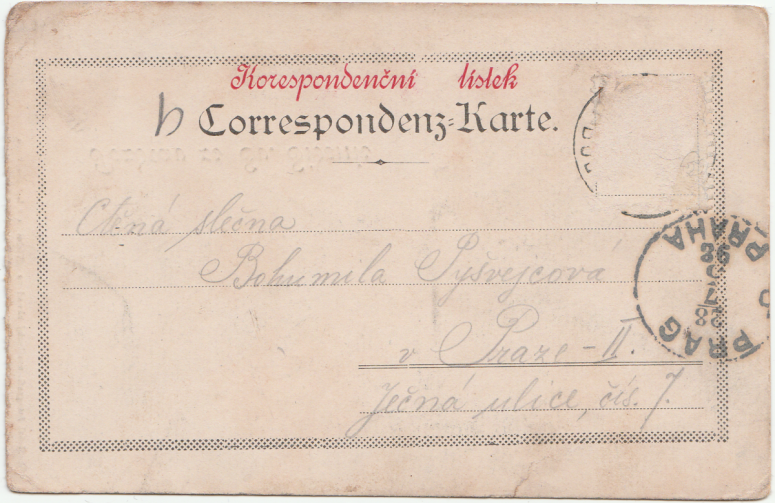 Korespondenční lístek
Correspondenz-Karte.
Ctěná slečna
Bohumila Pyšvejcová
v Praze-II.
Ječná ulice, čís. 7.
PRAG
PRAHA
28
98